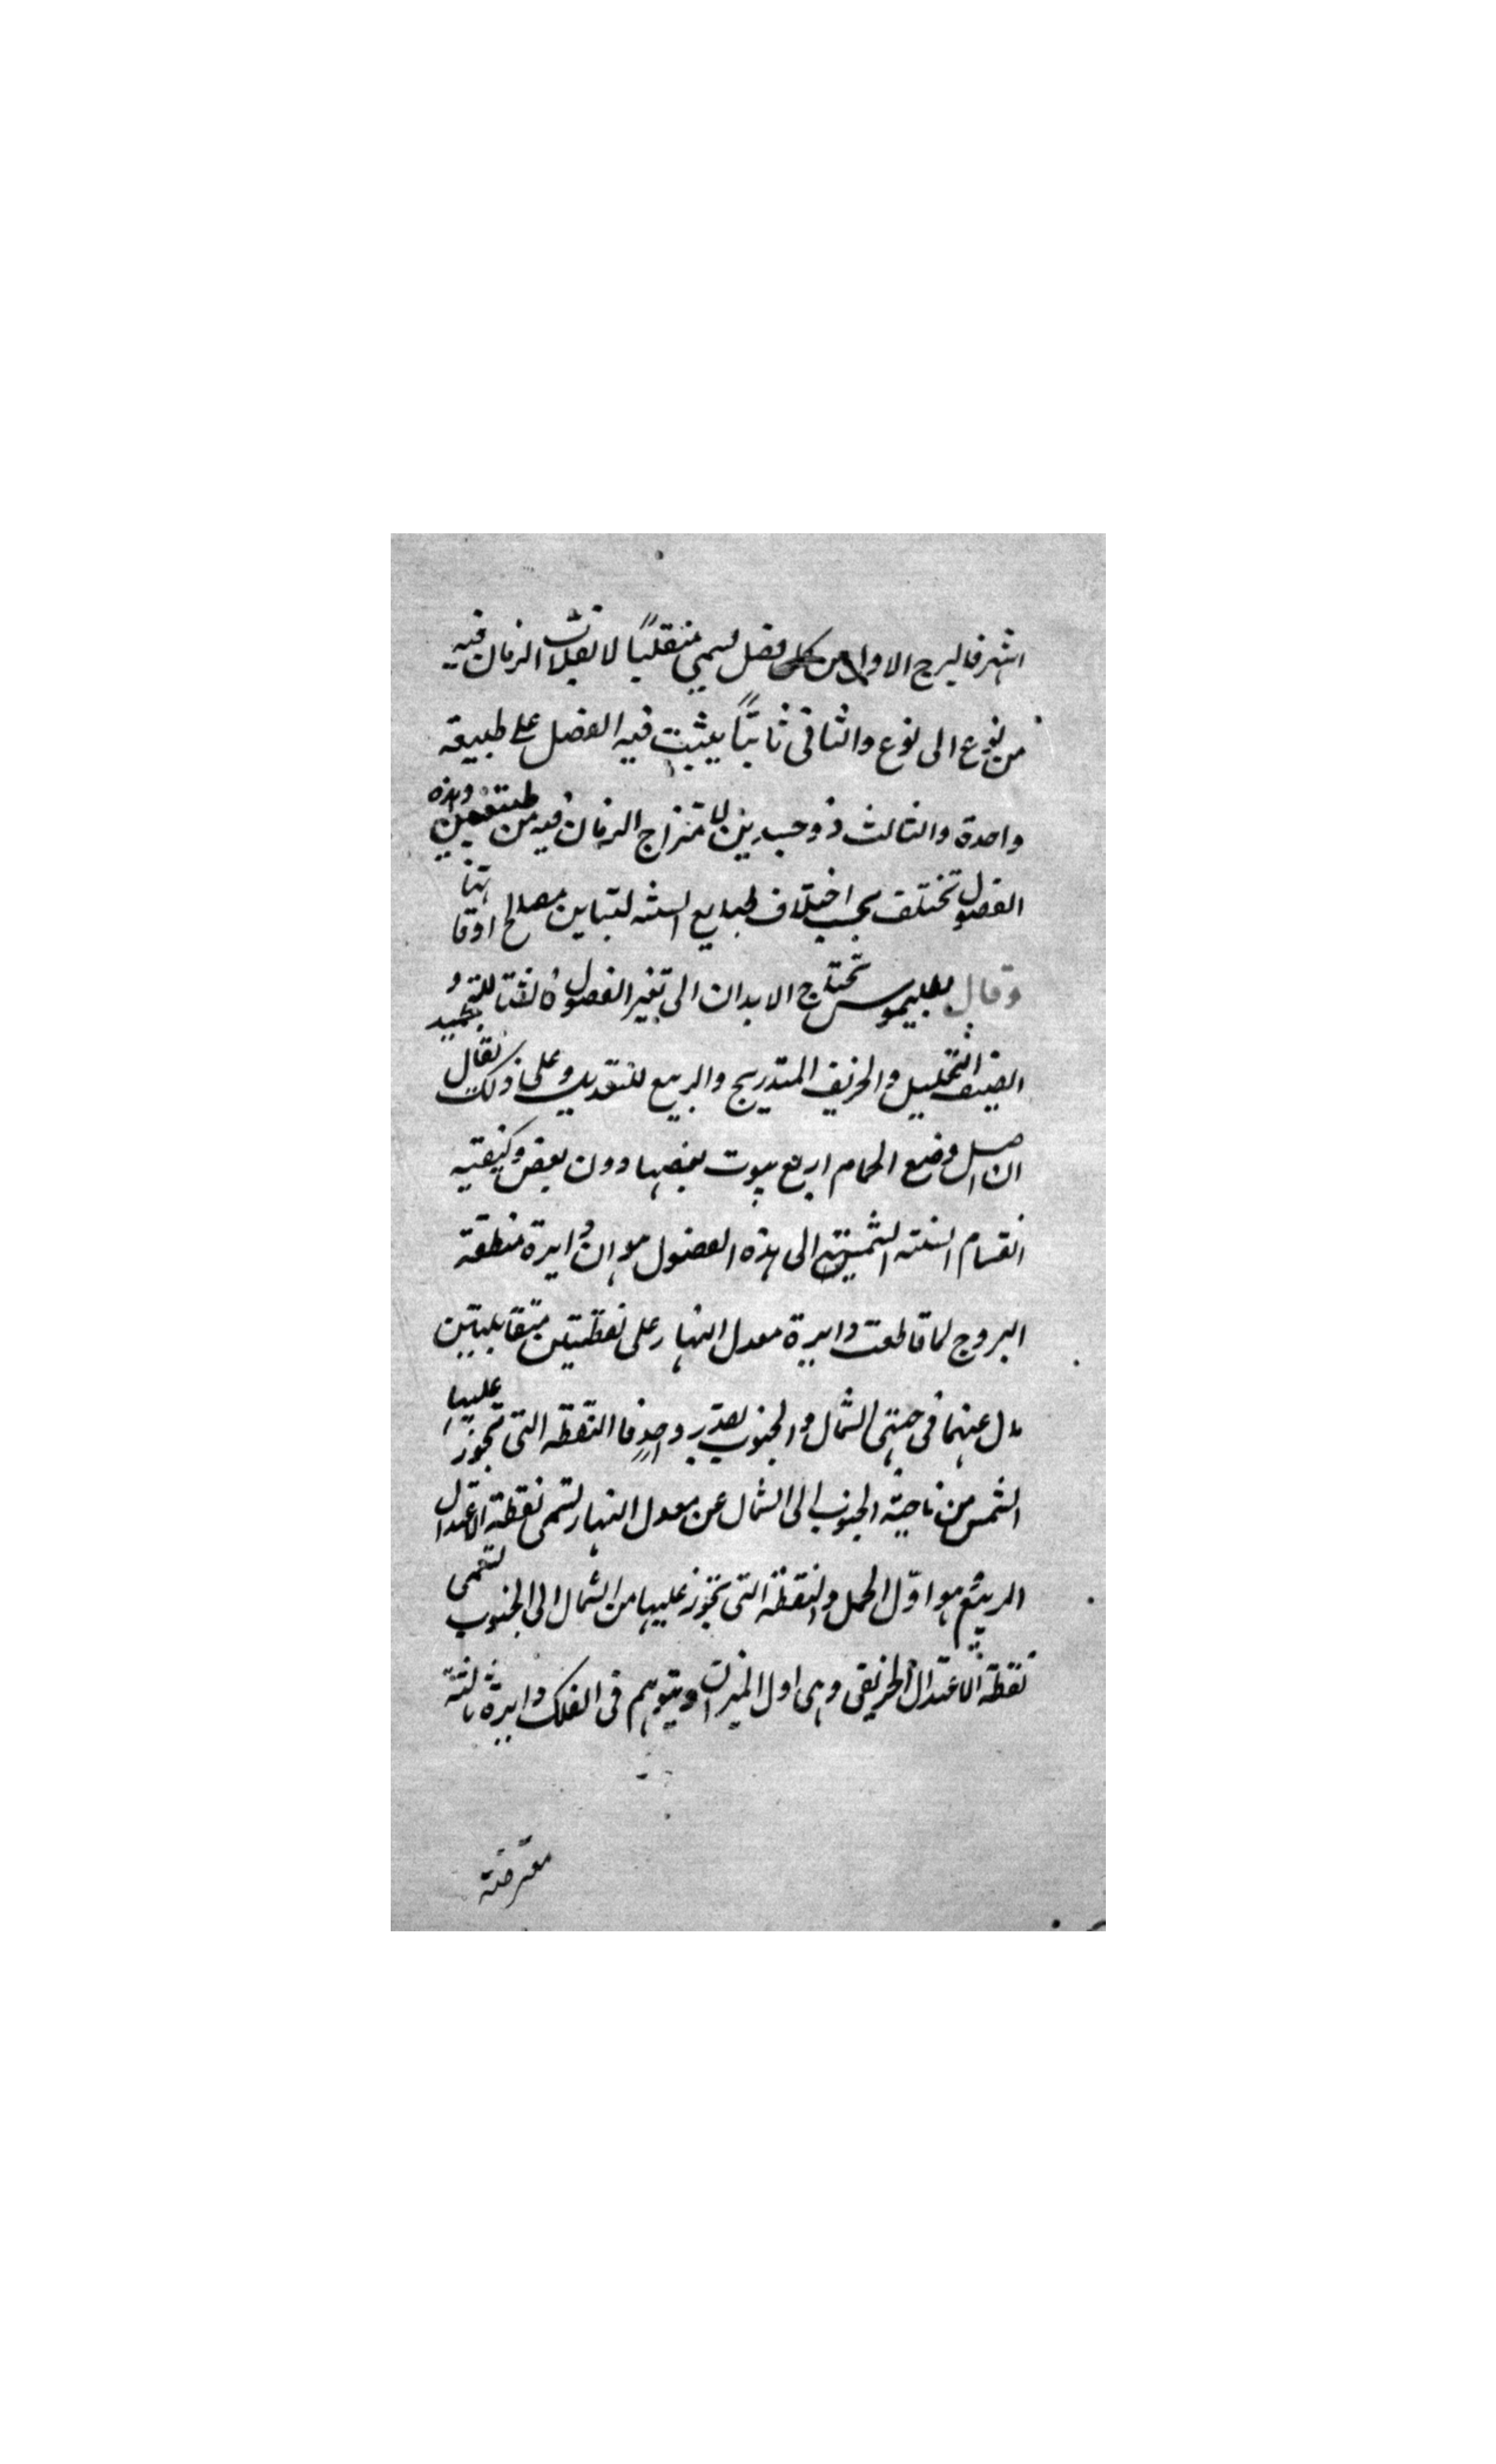 اشهر فالبرج الاول من كل فصل يسمى منقلبًا لانقلاب الزمان فيه
من نوع الى نوع والثانى ثابتًا يثبت فيه الفصل على طبيعة
واحدة والثالث ذو جسدين لامتزاج الزمان فيه من طبيعتين وهذه
الفصول تختلف بحسب اختلاف طبايع السنة لتباين مصالح اوقاتها
وقال بطليموس تحتاج الابدان الى تغير الفصول فالشتا للتجميد و
الصيف للتحليل والخريف للتدريج والربيع للتعديل وعلى ذلك يقال
ان اصل وضع الحمام اربع بيوت بعضها دون بعض وكيفية
انقسام السنة الشمسية الى هذه الفصول هو ان دايرة منطقة
البروج لما قاطعت دايرة معدل النهار على نقطتين متقابلتين
مال عنهما فى جهتى الشمال والجنوب بقدر واحد فالنقطة التى تجوز عليها
الشمس من ناحية الجنوب الى الشمال عن معدل النهار تسمى نقطة الاعتدال
الربيعى هو اوّل الحمل والنقطة التى تجوز عليها من الشمال الى الجنوب تسمى
نقطة الاعتدال الخريفى وهى اول الميزان ويتوهم فى الفلك دايرة ثالثة
معترضة